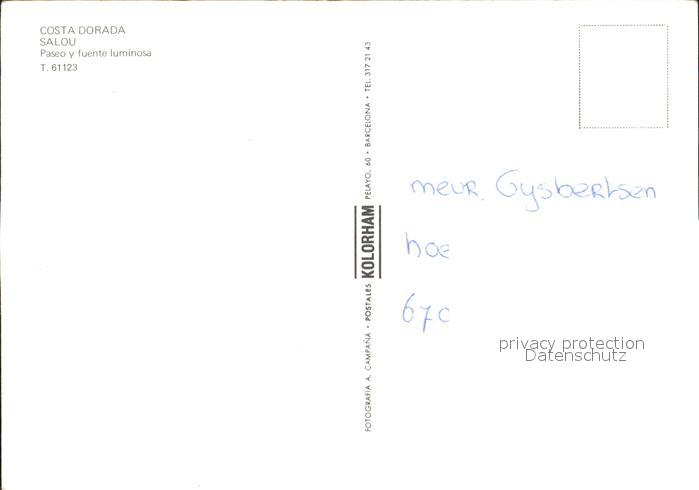 COSTA DORADA
SALOU
Paseo y fuente luminosa
T. 61123
FOTOGRAFIA A. CAMPAÑÁ • POSTALES KOLORHAM PELAYO, 60 • BARCELONA • TEL. 317 21 43
meur. Gysbertsen
hoe
670
privacy protection
Datenschutz